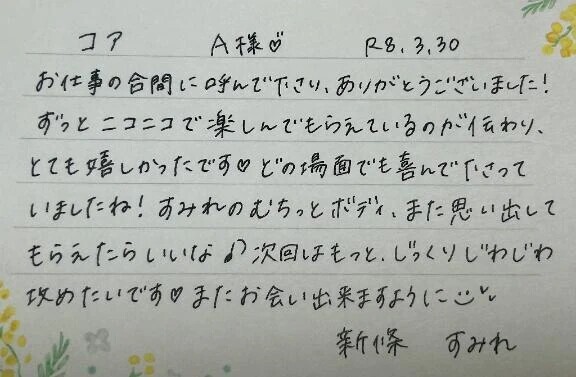 コア A様♡ R8.3.30
お仕事の合間に呼んで下さり、ありがとうございました!
ずっとニコニコで楽しんでもらえているのが伝わり、
とても嬉しかったです♡どの場面でも喜んで下さって
いましたね!すみれのむちっとボディ、また思い出して
もらえたらいいな♪次回はもっと、じっくりじわじわ
攻めたいです♡またお会い出来ますように
新條 すみれ